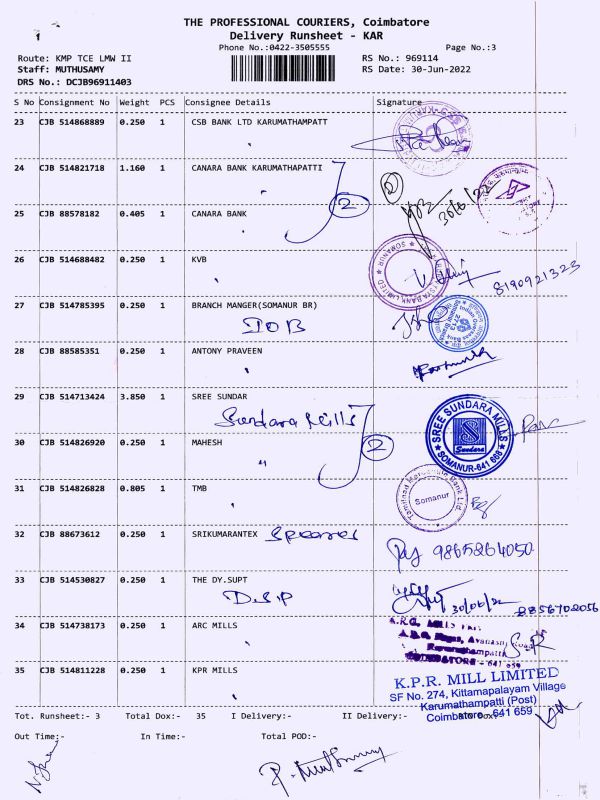 THE PROFESSIONAL COURIERS, Coimbatore
Delivery Runsheet - KAR
Phone No.:0422-3505555
Page No.:3
Route: KMP TCE LMW II
RS No.: 969114
Staff: MUTHUSAMY
RS Date: 30-Jun-2022
DRS No.: DCJB96911403
S No Consignment No Weight PCS Consignee Details Signature
23 CJB 514868889 0.250 1 CSB BANK LTD KARUMATHAMPATT
24 CJB 514821718 1.160 1 CANARA BANK KARUMATHAPATTI
2
2
30/6/22
25 CJB 88578182 0.405 1 CANARA BANK
26 CJB 514688482 0.250 1 KVB
SOMANUR
8190921323
27 CJB 514785395 0.250 1 BRANCH MANGER(SOMANUR BR)
IOB
28 CJB 88585351 0.250 1 ANTONY PRAVEEN
29 CJB 514713424 3.850 1 SREE SUNDAR
Sundara Mills
SREE SUNDARA MILLS
Sundara
SOMANUR-641 668
30 CJB 514826920 0.250 1 MAHESH
2
31 CJB 514826828 0.805 1 TMB
Tamilnad Mercantile Bank Ltd.
Somanur
32 CJB 88673612 0.250 1 SRIKUMARANTEX
9865264050
33 CJB 514530827 0.250 1 THE DY.SUPT
D.S.P
30/06/22
8856702056
34 CJB 514738173 0.250 1 ARC MILLS
COIMBATORE - 641 659
35 CJB 514811228 0.250 1 KPR MILLS
K.P.R. MILL LIMITED
SF No. 274, Kittamapalayam Village
Karumathampatti (Post)
Coimbatore - 641 659
Tot. Runsheet:- 3 Total Dox:- 35 I Delivery:- II Delivery:-
Out Time:- In Time:- Total POD:-